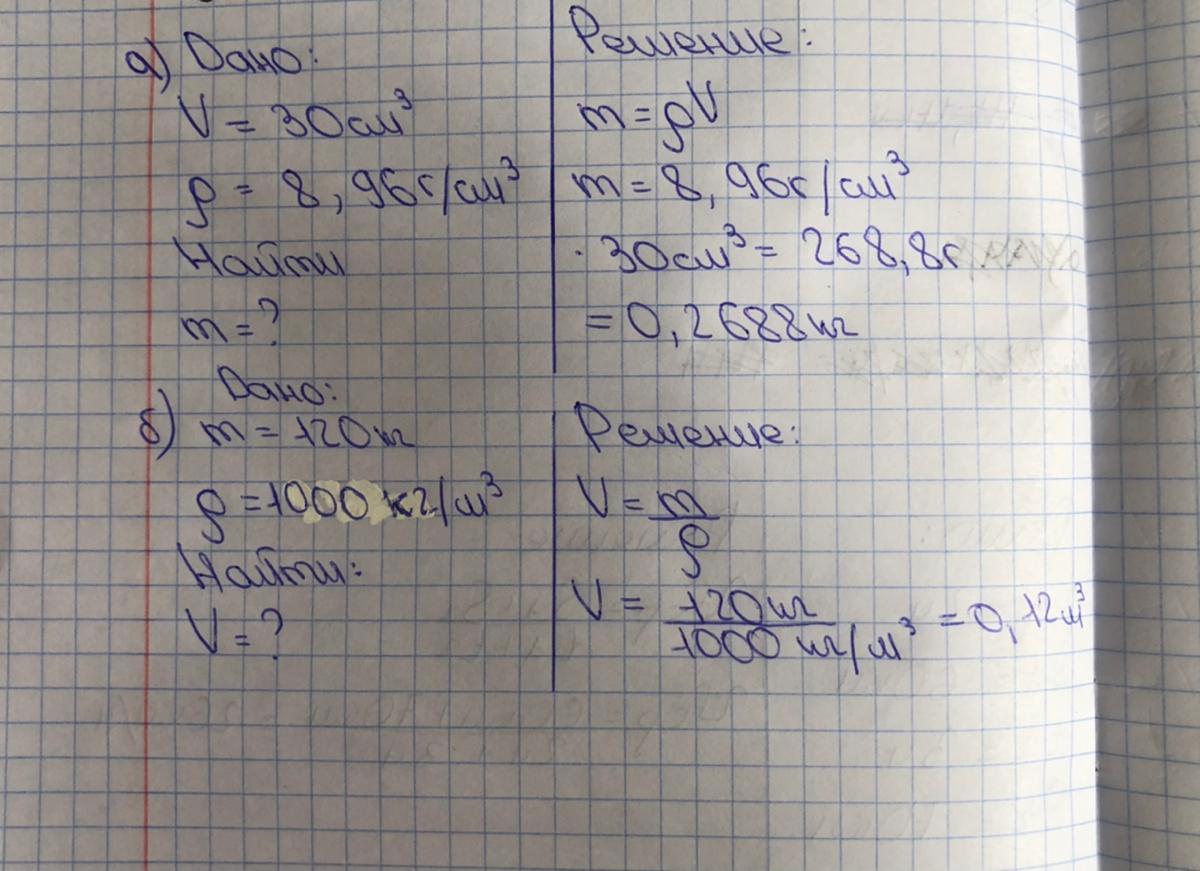 а) Дано:
V = 30см³
ρ = 8,96г/см³
Найти
m = ?
Решение:
m = ρV
m = 8,96г/см³
· 30см³ = 268,8г
= 0,2688кг
Дано:
б) m = 120кг
ρ = 1000 кг/м³
Найти:
V = ?
Решение:
V = m/ρ
V = 120кг/1000 кг/м³ = 0,12м³